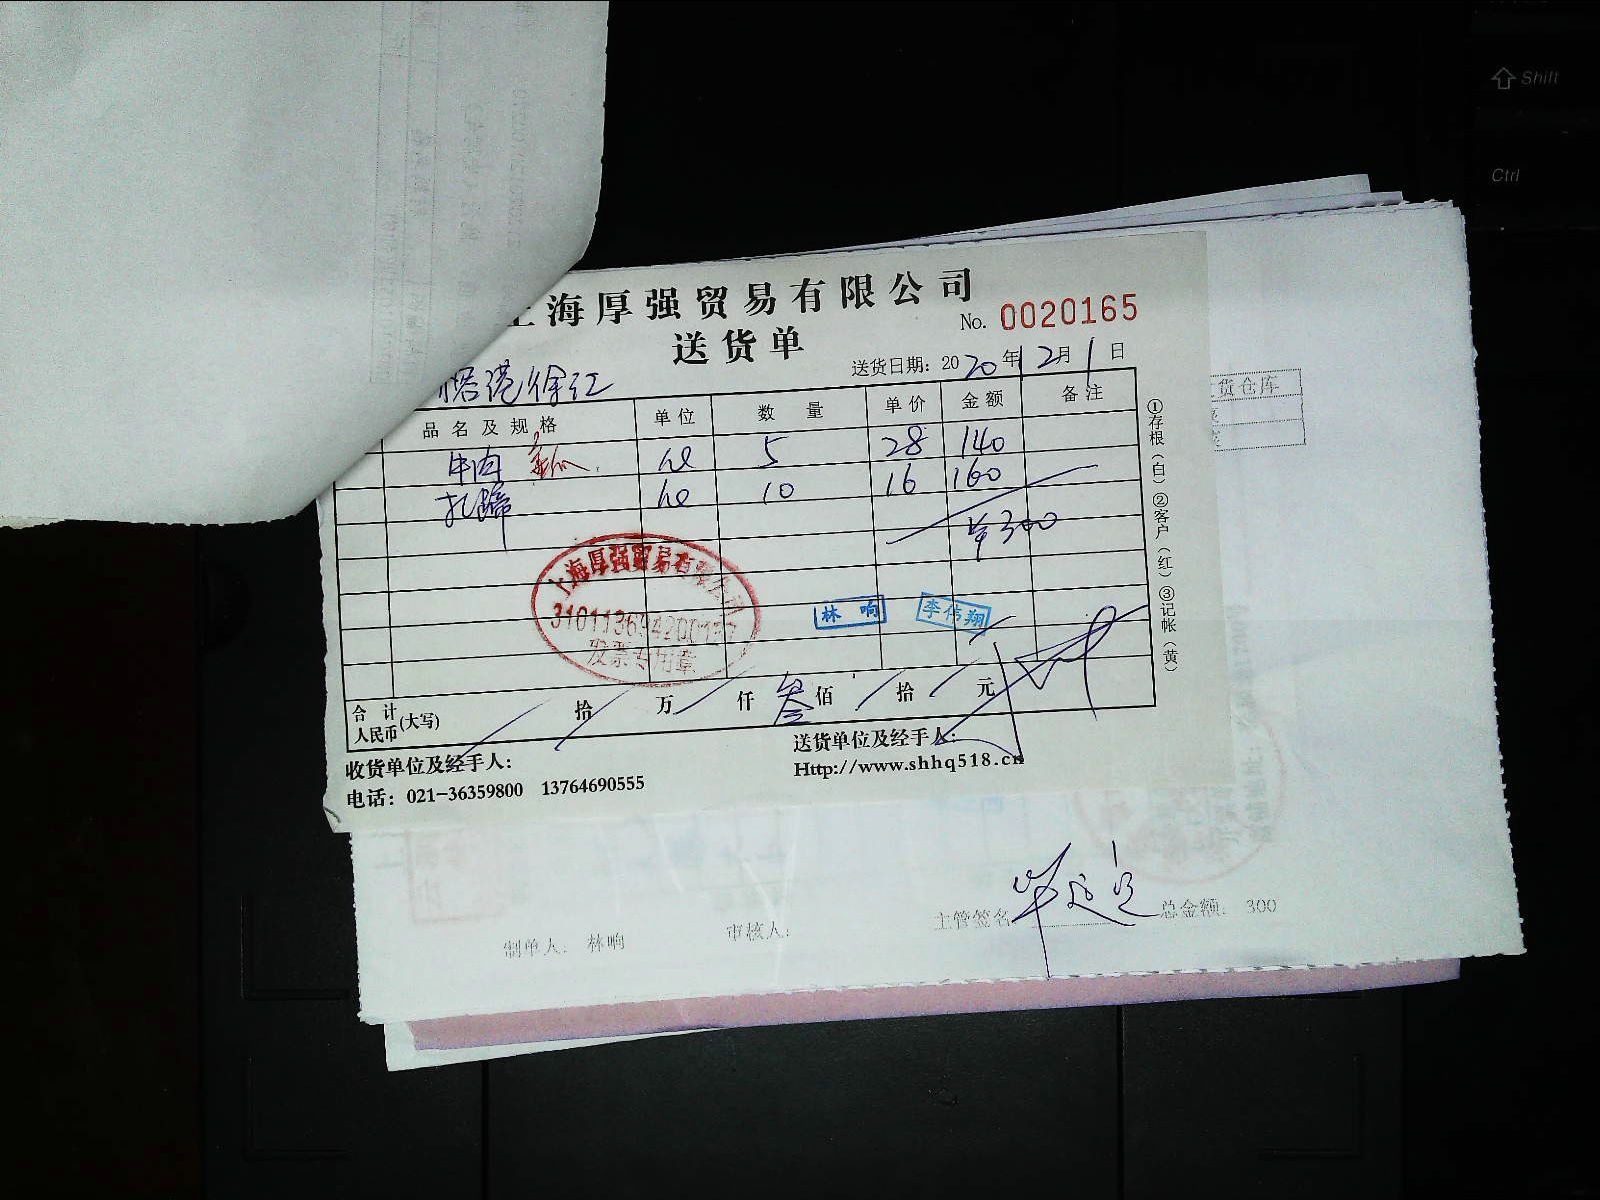 Shift
Ctrl
上海厚强贸易有限公司
No. 0020165
送货单
送货日期: 2020年12月1日
港徐汇
品名及规格 单位 数量 单价 金额 备注
牛肉 5 28 140
扎蹄 10 16 160
¥300
上海厚强贸易有限公司
发票专用章
林响
李伟翔
合计人民币(大写) 拾 万 仟 叁佰 拾 元
收货单位及经手人:
送货单位及经手人:
电话: 021-36359800 13764690555
Http://www.shhq518.cn
①存根(白)②客户(红)③记帐(黄)
货仓库
制单人: 林响
审核人:
主管签名
总金额: 300